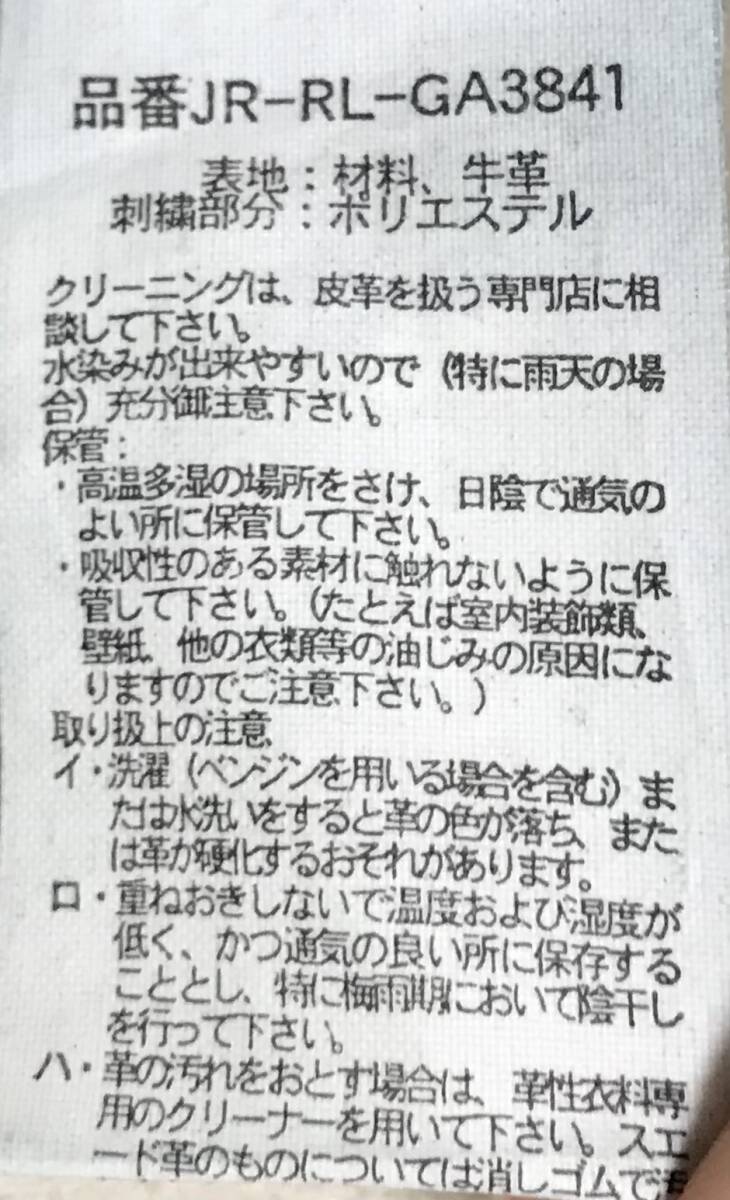 品番JR-RL-GA3841
表地：材料、牛革
刺繍部分：ポリエステル
クリーニングは、皮革を扱う専門店に相
談して下さい。
水染みが出来やすいので（特に雨天の場
合）充分御注意下さい。
保管：
・高温多湿の場所をさけ、日陰で通気の
よい所に保管して下さい。
・吸収性のある素材に触れないように保
管して下さい。（たとえば室内装飾類、
壁紙、他の衣類等の油じみの原因にな
りますのでご注意下さい。）
取り扱上の注意
イ・洗濯（ベンジンを用いる場合を含む）ま
たは水洗いをすると革の色が落ち、また
は革が硬化するおそれがあります。
ロ・重ねおきしないで温度および湿度が
低く、かつ通気の良い所に保存する
こととし、特に梅雨期において陰干し
を行って下さい。
ハ・革の汚れをおとす場合は、革性衣料専
用のクリーナーを用いて下さい。スエ
ード革のものについては消しゴムで